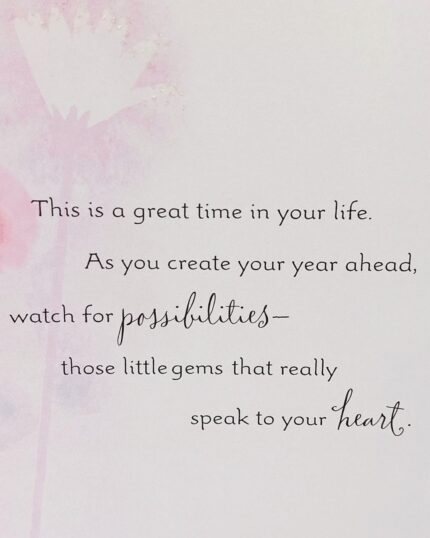 This is a great time in your life.
As you create your year ahead,
watch for possibilities—
those little gems that really
speak to your heart.